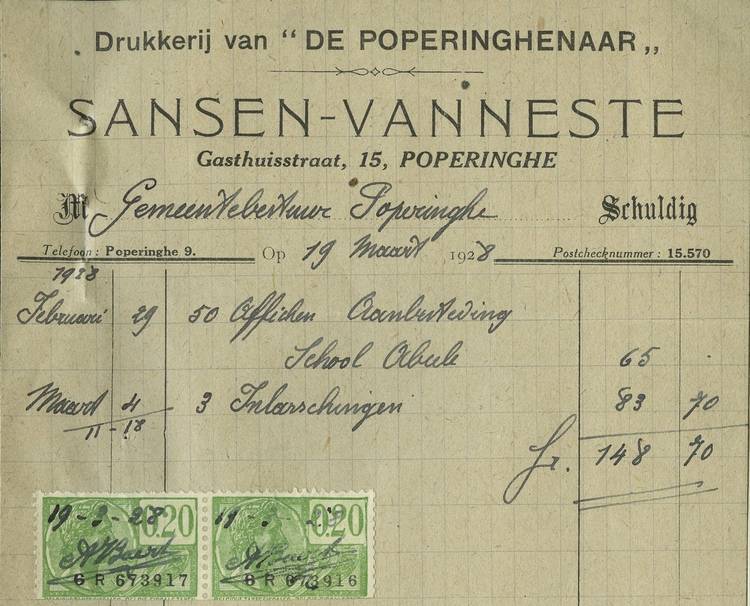 Drukkerij van "DE POPERINGHENAAR„
SANSEN-VANNESTE
Gasthuisstraat, 15, POPERINGHE
M Gemeentebestuur Poperinghe Schuldig
Telefoon: Poperinghe 9. Op 19 Maart 1928 Postchecknummer: 15.570
1928
Februari 29 50 Affichen Aanbesteding
School Abeele 65 .
Maart 4 3 Inlasschingen 83 70
11-18
Fr. 148 70
19-3-28 0.20 19-3-28 0.20
6 R 673917 6 R 673916